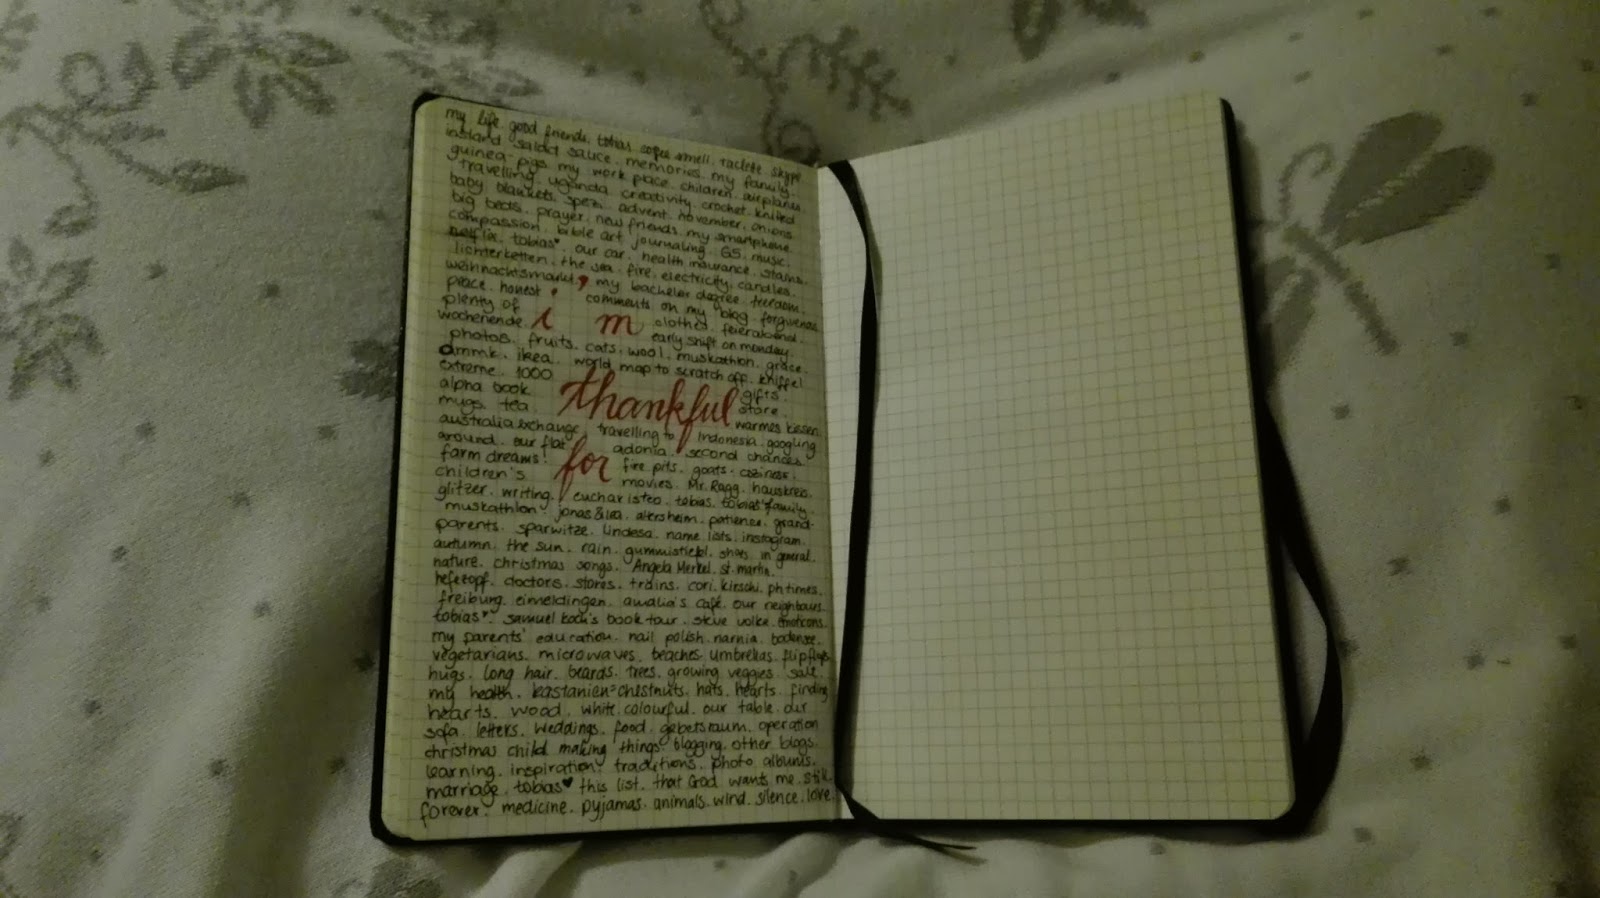 my life. good friends. tobias smell. raclette. skype
instant salad sauce. memories. my family.
guinea-pigs. my work place. children. airplanes.
travelling. uganda. creativity. crochet. knitted
baby blankets. spezi. advent. november. onions
big beds. prayer. new friends. my smartphone.
compassion. bible art journaling. GS. music.
netflix. tobias♥. our car. health insurance. stamps.
lichterketten. the sea. fire. electricity. candles.
weihnachtsmarkt. my bachelor degree. freedom.
peace. honest comments on my blog. forgiveness
plenty of clothes. feierabend.
wochenende. i'm early shift on monday.
photos. fruits. cats. wool. muskathlon. grace.
dmmk. ikea. world map to scratch off. kniffel
extreme. 1000 gifts.
alpha book store.
mugs. tea. thankful warmes kissen.
australia exchange. travelling to indonesia. googling
around. our flat. adonia. second chances.
farm dreams! for fire pits. goats. coziness.
children's movies. Mr. Ragg. hauskreis.
glitzer. writing. eucharisteo. tobias. tobias' family.
muskathlon. jonas & lea. altersheim. patience. grand-
parents. sparwitze. lindesa. name lists. instagram.
autumn. the sun. rain. gummistiefel. shots in general.
nature. christmas songs. Angela Merkel. st. martin.
hefezopf. doctors. stores. trains. cori. kirschi. ph times.
freiburg. eimeldingen. amalia's café. our neighbours.
tobias♥. samuel koch's book tour. steve volke. emoticons.
my parents' education. nail polish. narnia. bodensee.
vegetarians. microwaves. beaches. umbrellas. flipflops
hugs. long hair. beards. trees. growing veggies. salt.
my health. kastanien=chestnuts. hats. hearts. finding
hearts. wood. white. colourful. our table. our
sofa. letters. weddings. food. gebetsraum. operation
christmas child. making things. blogging. other blogs.
learning. inspiration. traditions. photo albums.
marriage. tobias♥ this list. that God wants me. still.
forever. medicine. pyjamas. animals. wind. silence. love.